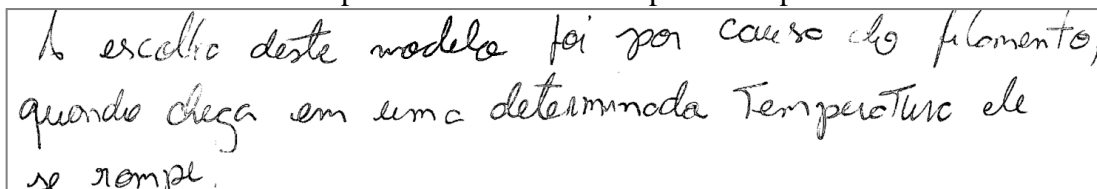 A escolha deste modelo foi por causa do filamento,
quando chega em uma determinada Temperatura ele
se rompe.